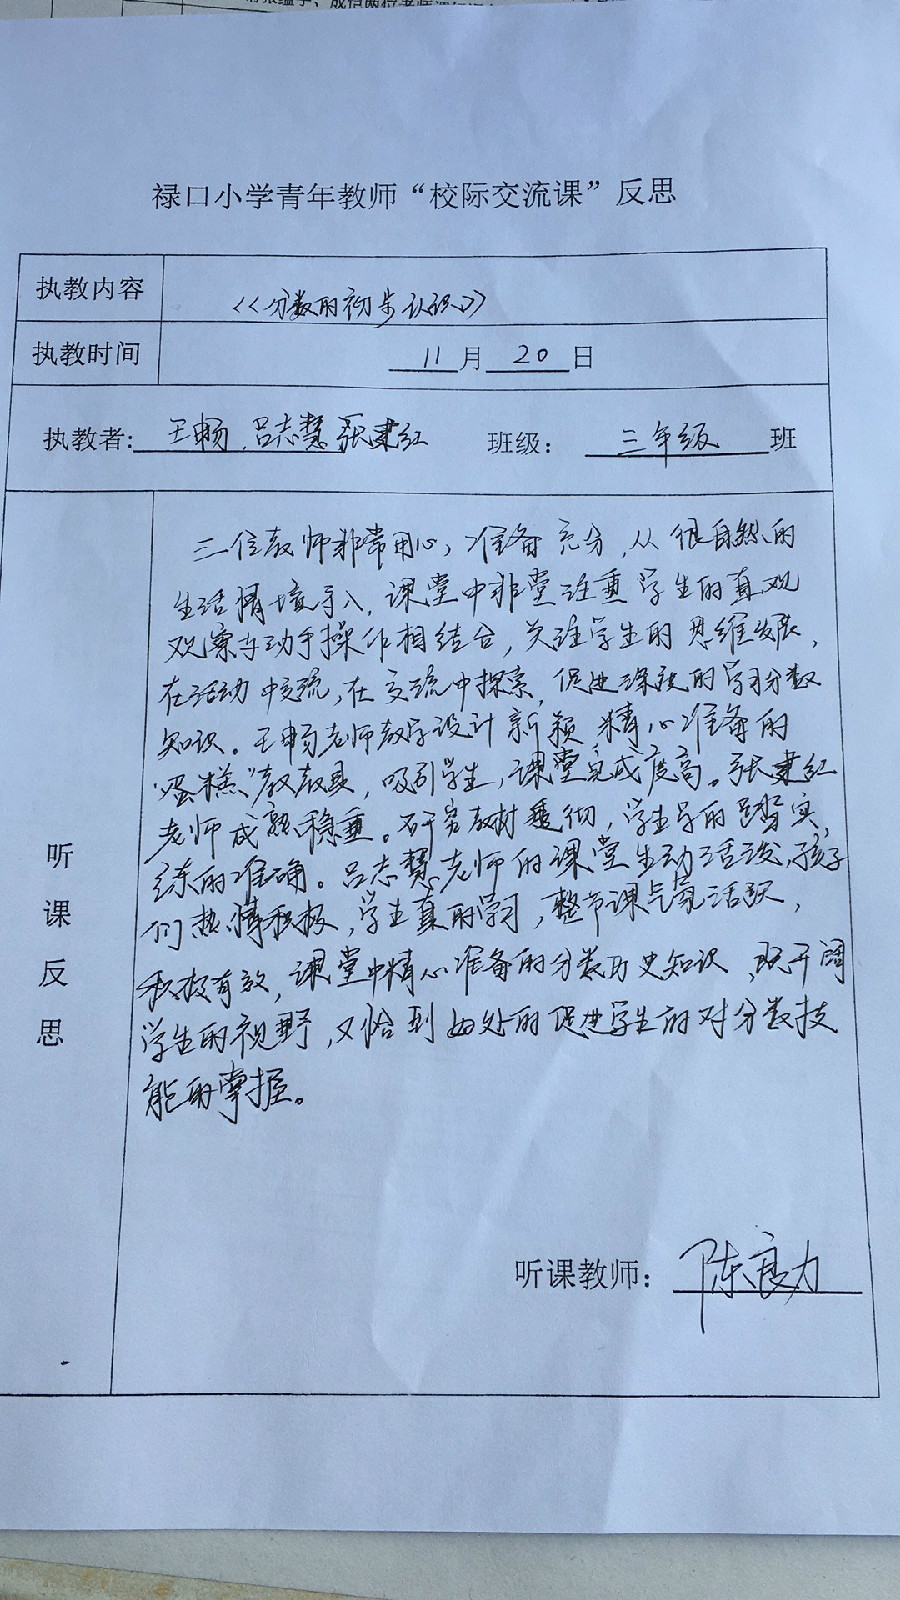 禄口小学青年教师“校际交流课”反思
执教内容 《分数的初步认识》
执教时间 11月20日
执教者：王畅、吕志慧、张建红 班级：三年级班
听课反思
三位教师非常用心，准备充分，从很自然的
生活情境导入，课堂中非堂注重学生的直观
观察与动手操作相结合，关注学生的思维发展，
在活动中交流，在交流中探索，促进深度的学习分数
知识。王畅老师教学设计新颖 精心准备的
“蛋糕”教教具，吸引学生，课堂完成度高。张建红
老师成熟稳重。研究教材透彻，学生学的踏实，
练的准确。吕志慧老师的课堂生动活泼，孩子
们热情积极，学生真的学习，整节课气氛活跃，
积极有效，课堂中精心准备的分数历史知识，既开阔
学生的视野，又恰到好处的促进学生的对分数技
能的掌握。
听课教师：陈良力